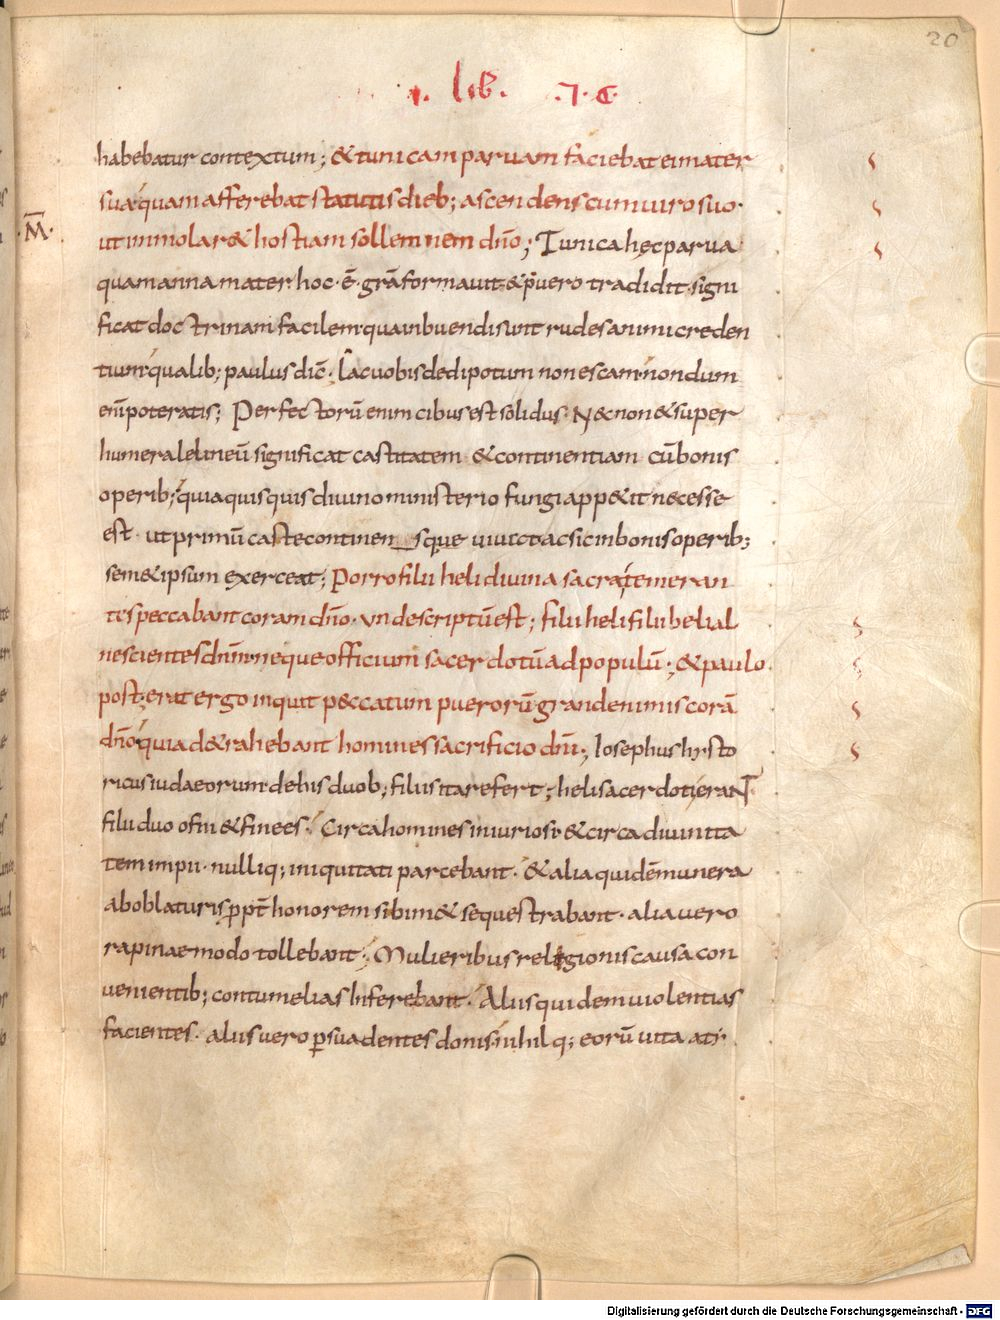 20
i. lib. .7. C
habebatur contextum; & tunicam paruam faciebat ei mater
sua quam afferebat statutis dieb; ascendens cum uiro suo.
.M̄. ut immolar& hostiam sollemnem dn̄o; Tunica hęc parua
quam anna mater hoc ē gr̄a formauit & puero tradidit. signi
ficat doctrinam facilem quam buendi sunt rudes animi creden
tium. qualib; paulus dic̄. Lac uobis dedi potum non escam. nondum
eni̅ poteratis; Perfectorū enim cibus est solidus. N& non & super
humerale lineū significat castitatem & continentiam cū bonis
operib; quia quisquis diuino ministerio fungi app&it necesse
est. ut primū caste continen_sque uiuat ac sic in bonis operib;
sem&ipsum exerceat; Porro filii heli diuina sacra temeran
tes peccabant coram dn̄o. unde scriptū est; filii heli filii belial
nescientes dn̄m neque officium sacerdotū ad populū; & paulo
post; erat ergo inquit peccatum puerorū grande nimis corā
dn̄o quia d&rahebant homines sacrificio dn̄i; Iosephus hysto
ricus iudaeorum de his duob; filiis ita refert; heli sacerdoti erant
filii duo ofni & finees. Circa homines iniuriosi & circa diuinita
tem impii. nulliq; iniquitati parcebant. & alia quidē munera
ab oblaturis ꝓpt̄ honorem sibim& sequestrabant. alia uero
rapinae modo tollebant; Mulieribus religionis causa con
uenientib; contumelias inferebant. Aliis quidem uiolentias
facientes. aliis uero ꝑsuadentes donis. nihilq; eorū uita a tỉ
Digitalisierung gefördert durch die Deutsche Forschungsgemeinschaft - DFG